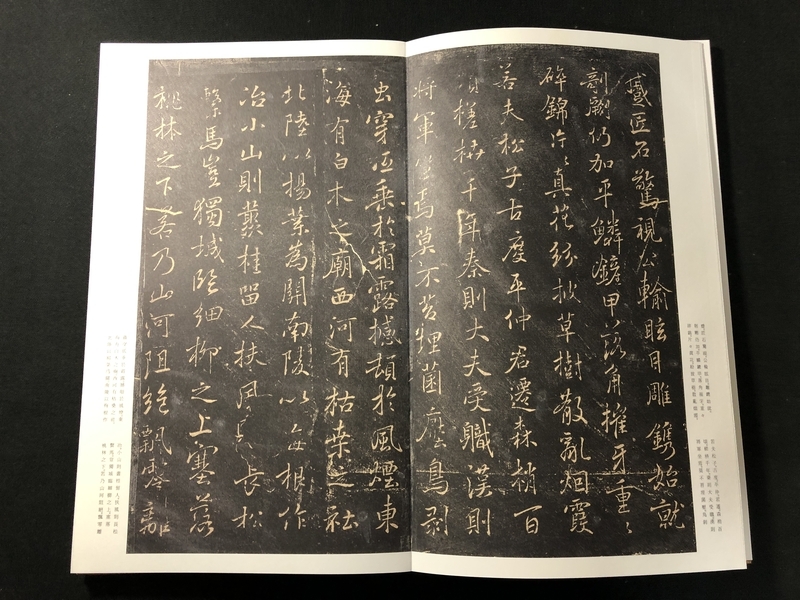 蹙匠石驚視公輸眩目雕鐫始就
剞劂仍加平鱗鏟甲落角摧牙重〻
碎錦片〻真花紛披草樹散亂烟霞
若夫松子古度平仲君遷森梢百
頃槎枿千年秦則大夫受職漢則
將軍坐焉莫不苔埋菌壓鳥剥
虫穿低垂於霜露撼頓於風煙東
海有白木之廟西河有枯桒之社
北陸以揚葉為關南陵以每根作
冶小山則叢桂留人扶風長松
繫馬豈獨城臨細柳之上塞落
桃林之下若乃山河阻絶飄零離